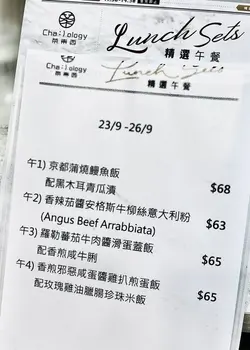 Cha:logy
茶東西
Lunch Sets
精選午餐
Lunch Sets
23/9 -26/9
午1) 京都蒲燒鰻魚飯
配黑木耳青瓜漬 $68
午2) 香辣茄醬安格斯牛柳絲意大利粉
(Angus Beef Arrabbiata) $63
午3) 羅勒蕃茄牛肉醬滑蛋蓋飯
配香煎咸牛脷 $65
午4) 香煎邪惡咸蛋醬雞扒煎蛋飯
配玫瑰雞油臘腸珍珠米飯 $65